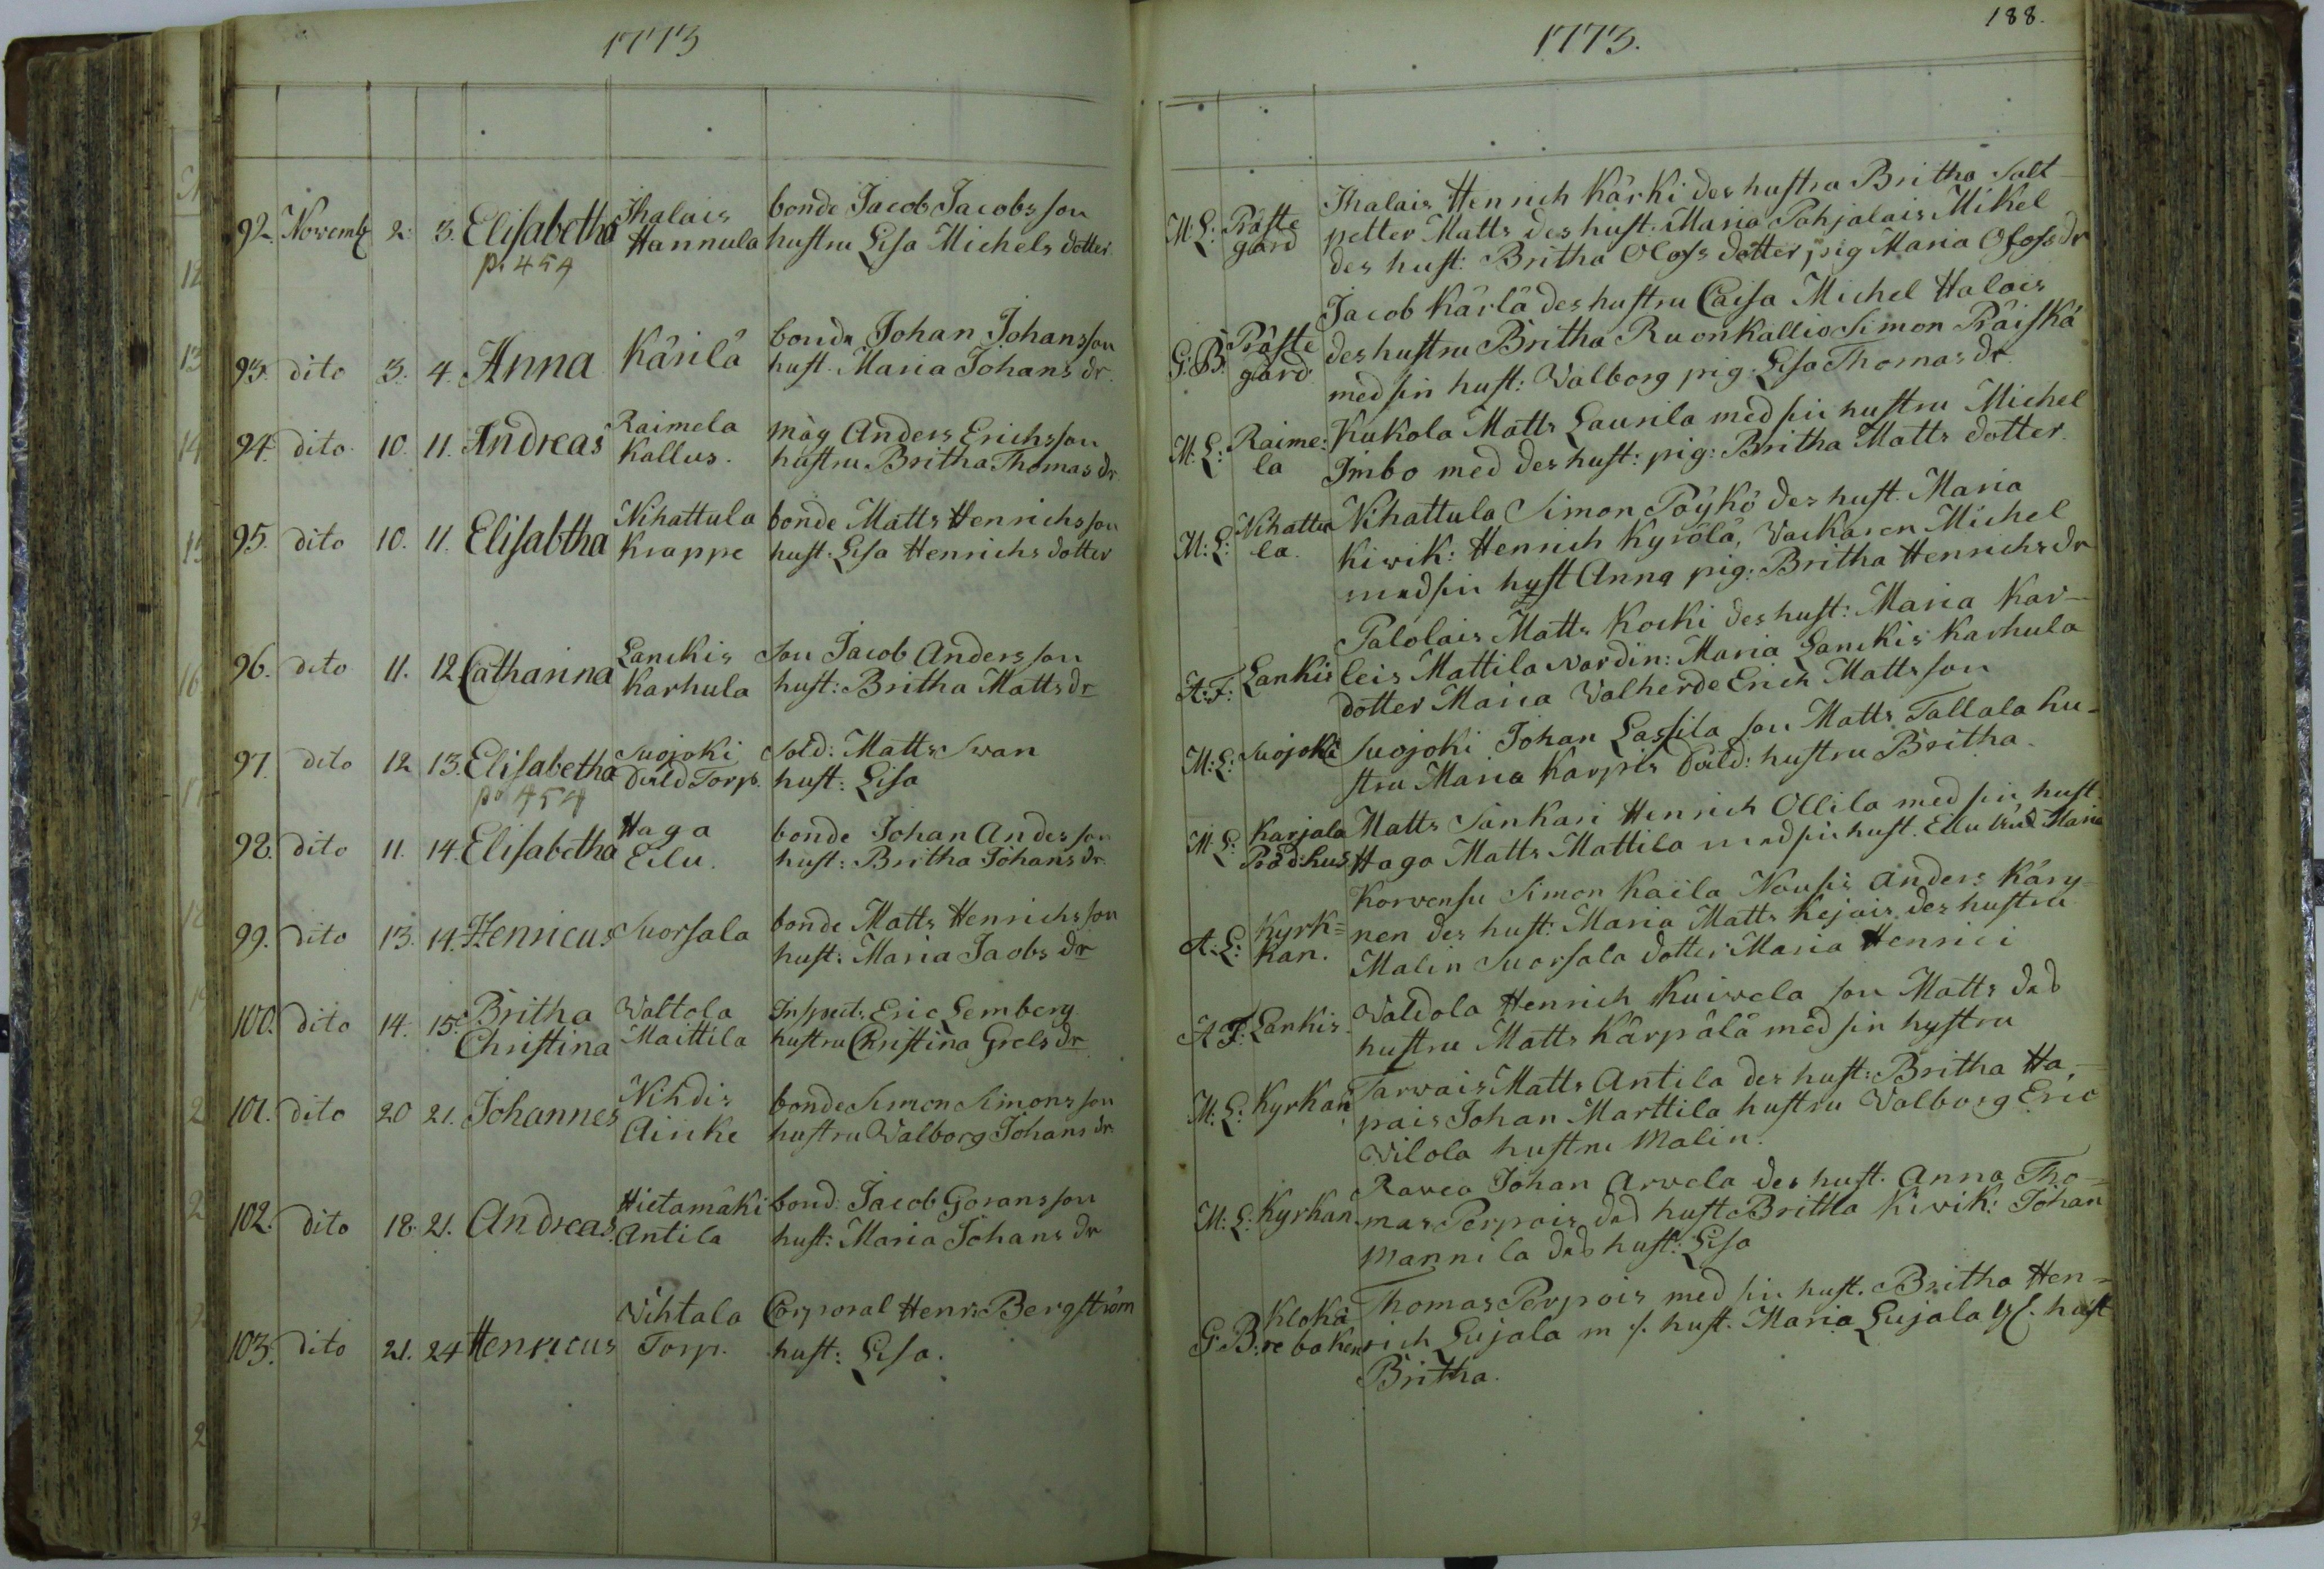 1773
92. Novemb 2. 3. Elisabetha Ihalais bonde Jacob Jacobs son
p. 454 Hannula hustru Lisa Michels dotter
93. dito 3. 4. Anna Kärilä bonde Johan Johansson
hust. Maria Johans dr.
94. dito 10. 11. Andreas Raimela måg Anders Erichsson
Kallus. hustru Britha Thomas dr
95. dito 10. 11. Elisabtha Nihattula bonde Matts Henrichsson
Krappe hust. Lisa Henrichs dotter
96. dito 11. 12. Catharina Lanckis Son Jacob Andersson
Karhula hust: Britha Matts dr
97. dito 12 13. Elisabetha Suojoki Sold: Matts Swan
p. 454 Torp. hust: Lisa
98. dito 11. 14. Elisabetha Haga bonde Johan Andersson
Eilu. hust: Britha Johans dr.
99. dito 13. 14. Henricus Suorsala bonde Matts Henrichsson
hust: Maria Jacobs dr
100. dito 14. 15. Britha Waltola Inspect. Eric Lemberg
Christina Maittila hustru Christina Grels dr
101. dito 20 21. Johannes Nihdis bonde Simon Simonsson
Ainke hustru Walborg Johans dr.
102. dito 18. 21. Andreas. Hietamäki bond: Jacob Göransson
Antila hust: Maria Johans dr
103. dito 21. 24 Henricus Wihtala Corporal Henr: Bergström
Torp. hust: Lisa.
1773.
188.
Ihalais Henrich Kärki des hustru Britha Salt
M: L: Präste petter Matts des hust: Maria Pohjalais Mikel
gård des hust: Britha Olofs dotter, pig Maria Olofs dr
Jacob Kärlä des hustru Caisa Michel Halois
G: B: Präste des hustru Britha Ruonkallio Simon Präiskä
gård med sin hust: Walborg pig: Lisa Thomas dr.
M: L: Raime: Kukola Matts Laurila med sin hustru Michel
la Imbo med des hust: pig: Britha Matts dotter.
M: L: Nihattu Nihattula Simon Pöykö des hust. Maria
la. Kiwik: Henrich Kyrölä, Wackaren Michel
med sin hust Anna pig: Britha Henrichs dr
Palolais Matts Kocki des hust: Maria Kar-
A: F: Lankis leis Mattila Nordin: Maria Lanckis Karhula
dotter Maria Walherde Erich Mattsson
M: L: Suojoki Suojoki Johan Lassila son Matts Tallala hu-
stru Maria Karpis hustru Britha.
M: L: Karjala Matts Sankari Henrich Ollila med sin hust
Prädhus Haga Matts Mattila med sin hust. Eilu Maria
Korvensu Simon Kaila Nousis Anders Käry-
A: L: Kyrk= nen des hust: Maria Matts Kejois des hustru
kan. Malin Suorsala dotter Maria Henrici
A F: Lankis. Waldola Henrich Kuiwela son Matts des
hustru Matts Kärpälä med sin hustru
M: L: Kyrkan Tarvais Matts Antila des hust: Britha Ha,-
pais Johan Marttila hustru Walborg Eric
Wilola hustru Malin.
Ravea Johan Arwela des hust. Anna Tho-
M: L: Kyrkan. mas Perpois des hust Britha Kivik: Johan
Mannila des hust: Lisa
Kloka Thomas Perpois med sin hust. Britha Hen-
G: B: re boken rich Lujala m s. hust. Maria Lujala hust
Britha.